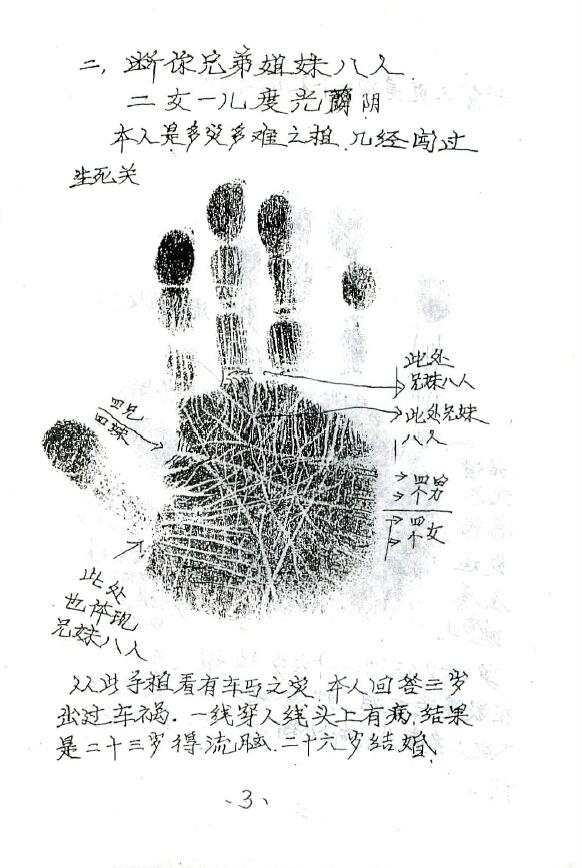 二，断你兄弟姐妹八人
二女一儿度光阴
本人是多灾多难之相、几经闯过
生死关
此处
兄妹八人
此处兄妹
八人
四兄
四妹
四个男
四个女
此处
也体现
兄妹八人
从此手相看有车马之灾，本人回答三岁
出过车祸．一线穿入线头上有病，结果
是二十三岁得流脑．二十六岁结婚，
·3、